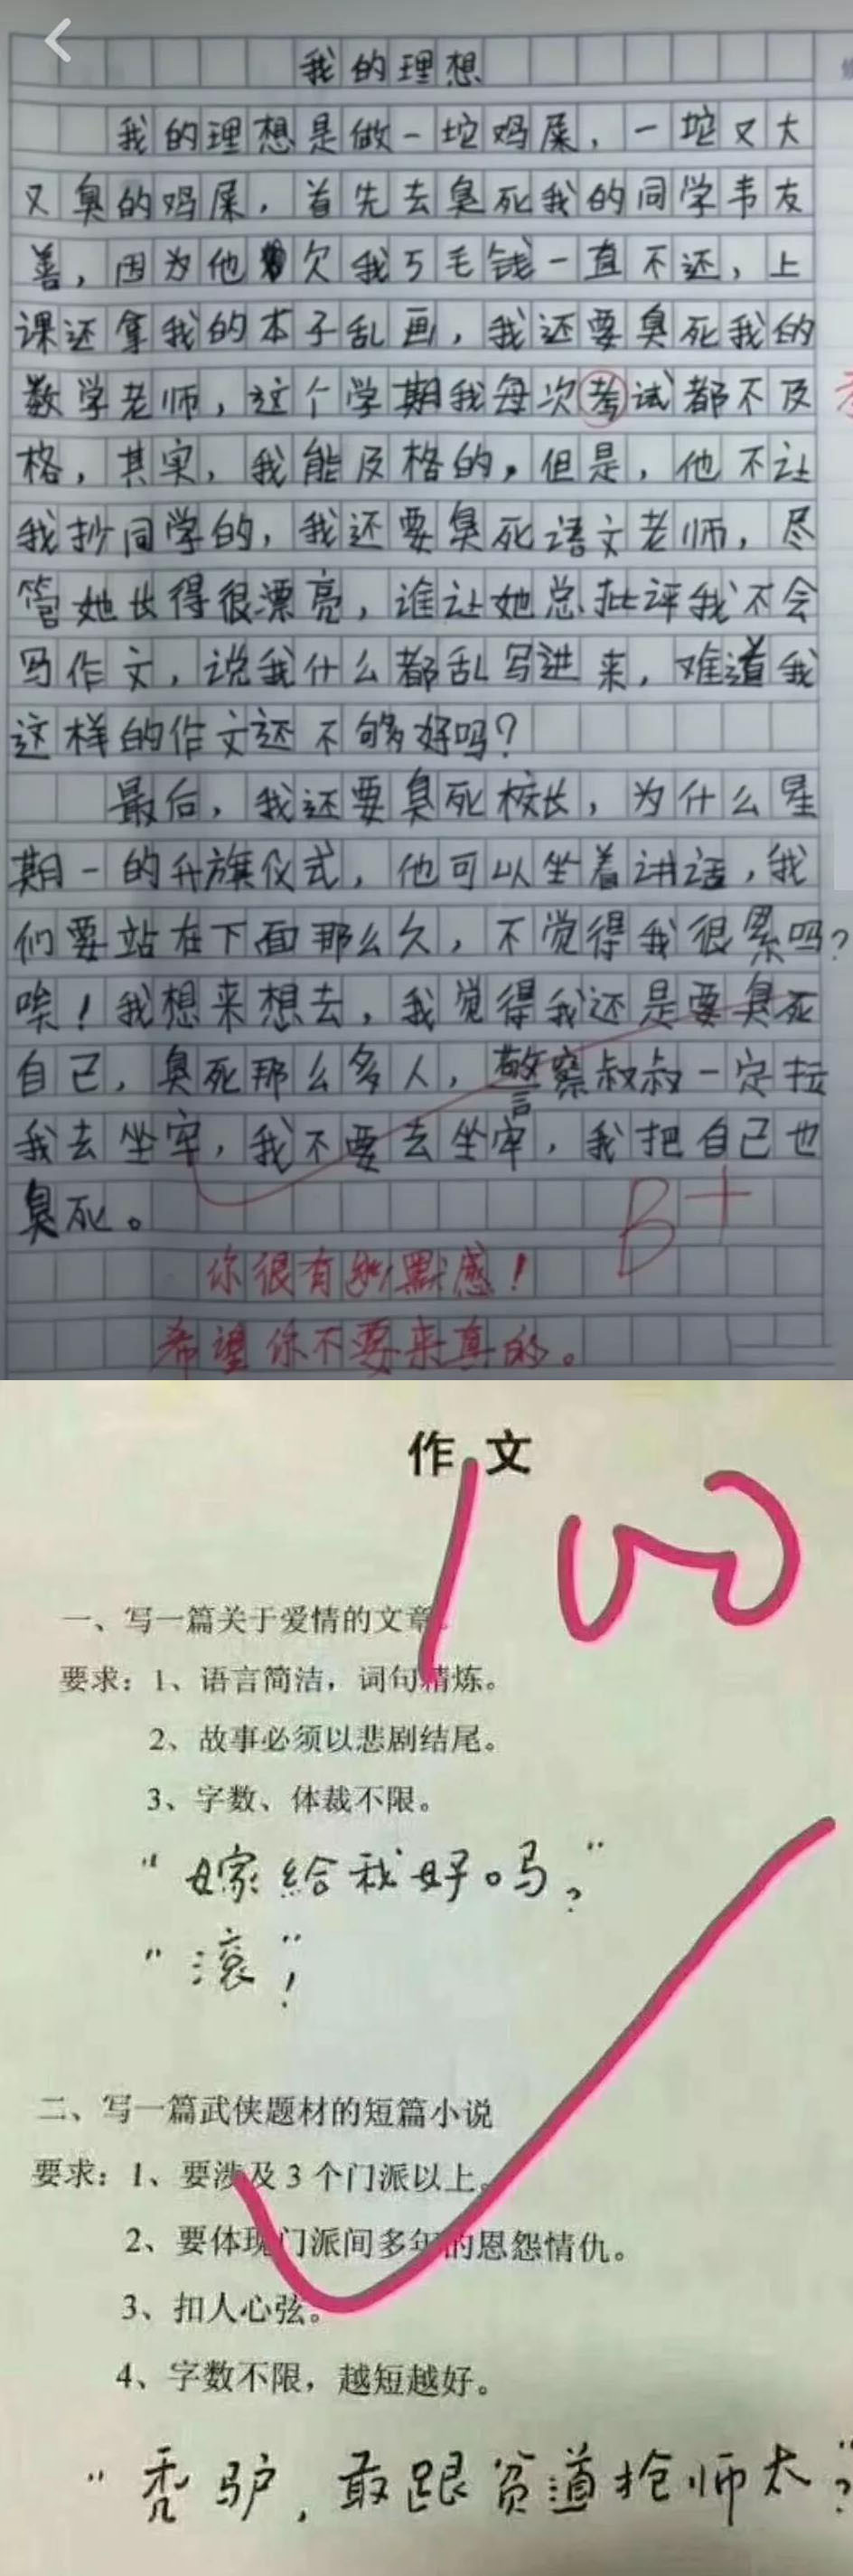 我的理想
我的理想是做一坨鸡屎，一坨又大
又臭的鸡屎，首先去臭死我的同学韦友
善，因为他欠我5毛钱一直不还，上
课还拿我的本子乱画，我还要臭死我的
数学老师，这个学期我每次考试都不及
格，其实，我能及格的，但是，他不让
我抄同学的，我还要臭死语文老师，尽
管她长得很漂亮，谁让她总批评我不会
写作文，说我什么都乱写进来，难道我
这样的作文还不够好吗？
最后，我还要臭死校长，为什么星
期一的升旗仪式，他可以坐着讲话，我
们要站在下面那么久，不觉得我很累吗？
唉！我想来想去，我觉得我还是要臭死
自己，臭死那么多人，警察叔叔一定拉
我去坐牢，我不要去坐牢，我把自己也
臭死。
B+
你很有幽默感！
希望你不要来真的。
作文
100
一、写一篇关于爱情的文章。
要求：1、语言简洁，词句精炼。
2、故事必须以悲剧结尾。
3、字数、体裁不限。
“嫁给我好吗？”
“滚”！
二、写一篇武侠题材的短篇小说
要求：1、要涉及3个门派以上。
2、要体现门派间多年的恩怨情仇。
3、扣人心弦。
4、字数不限，越短越好。
“秃驴，敢跟贫道抢师太？”